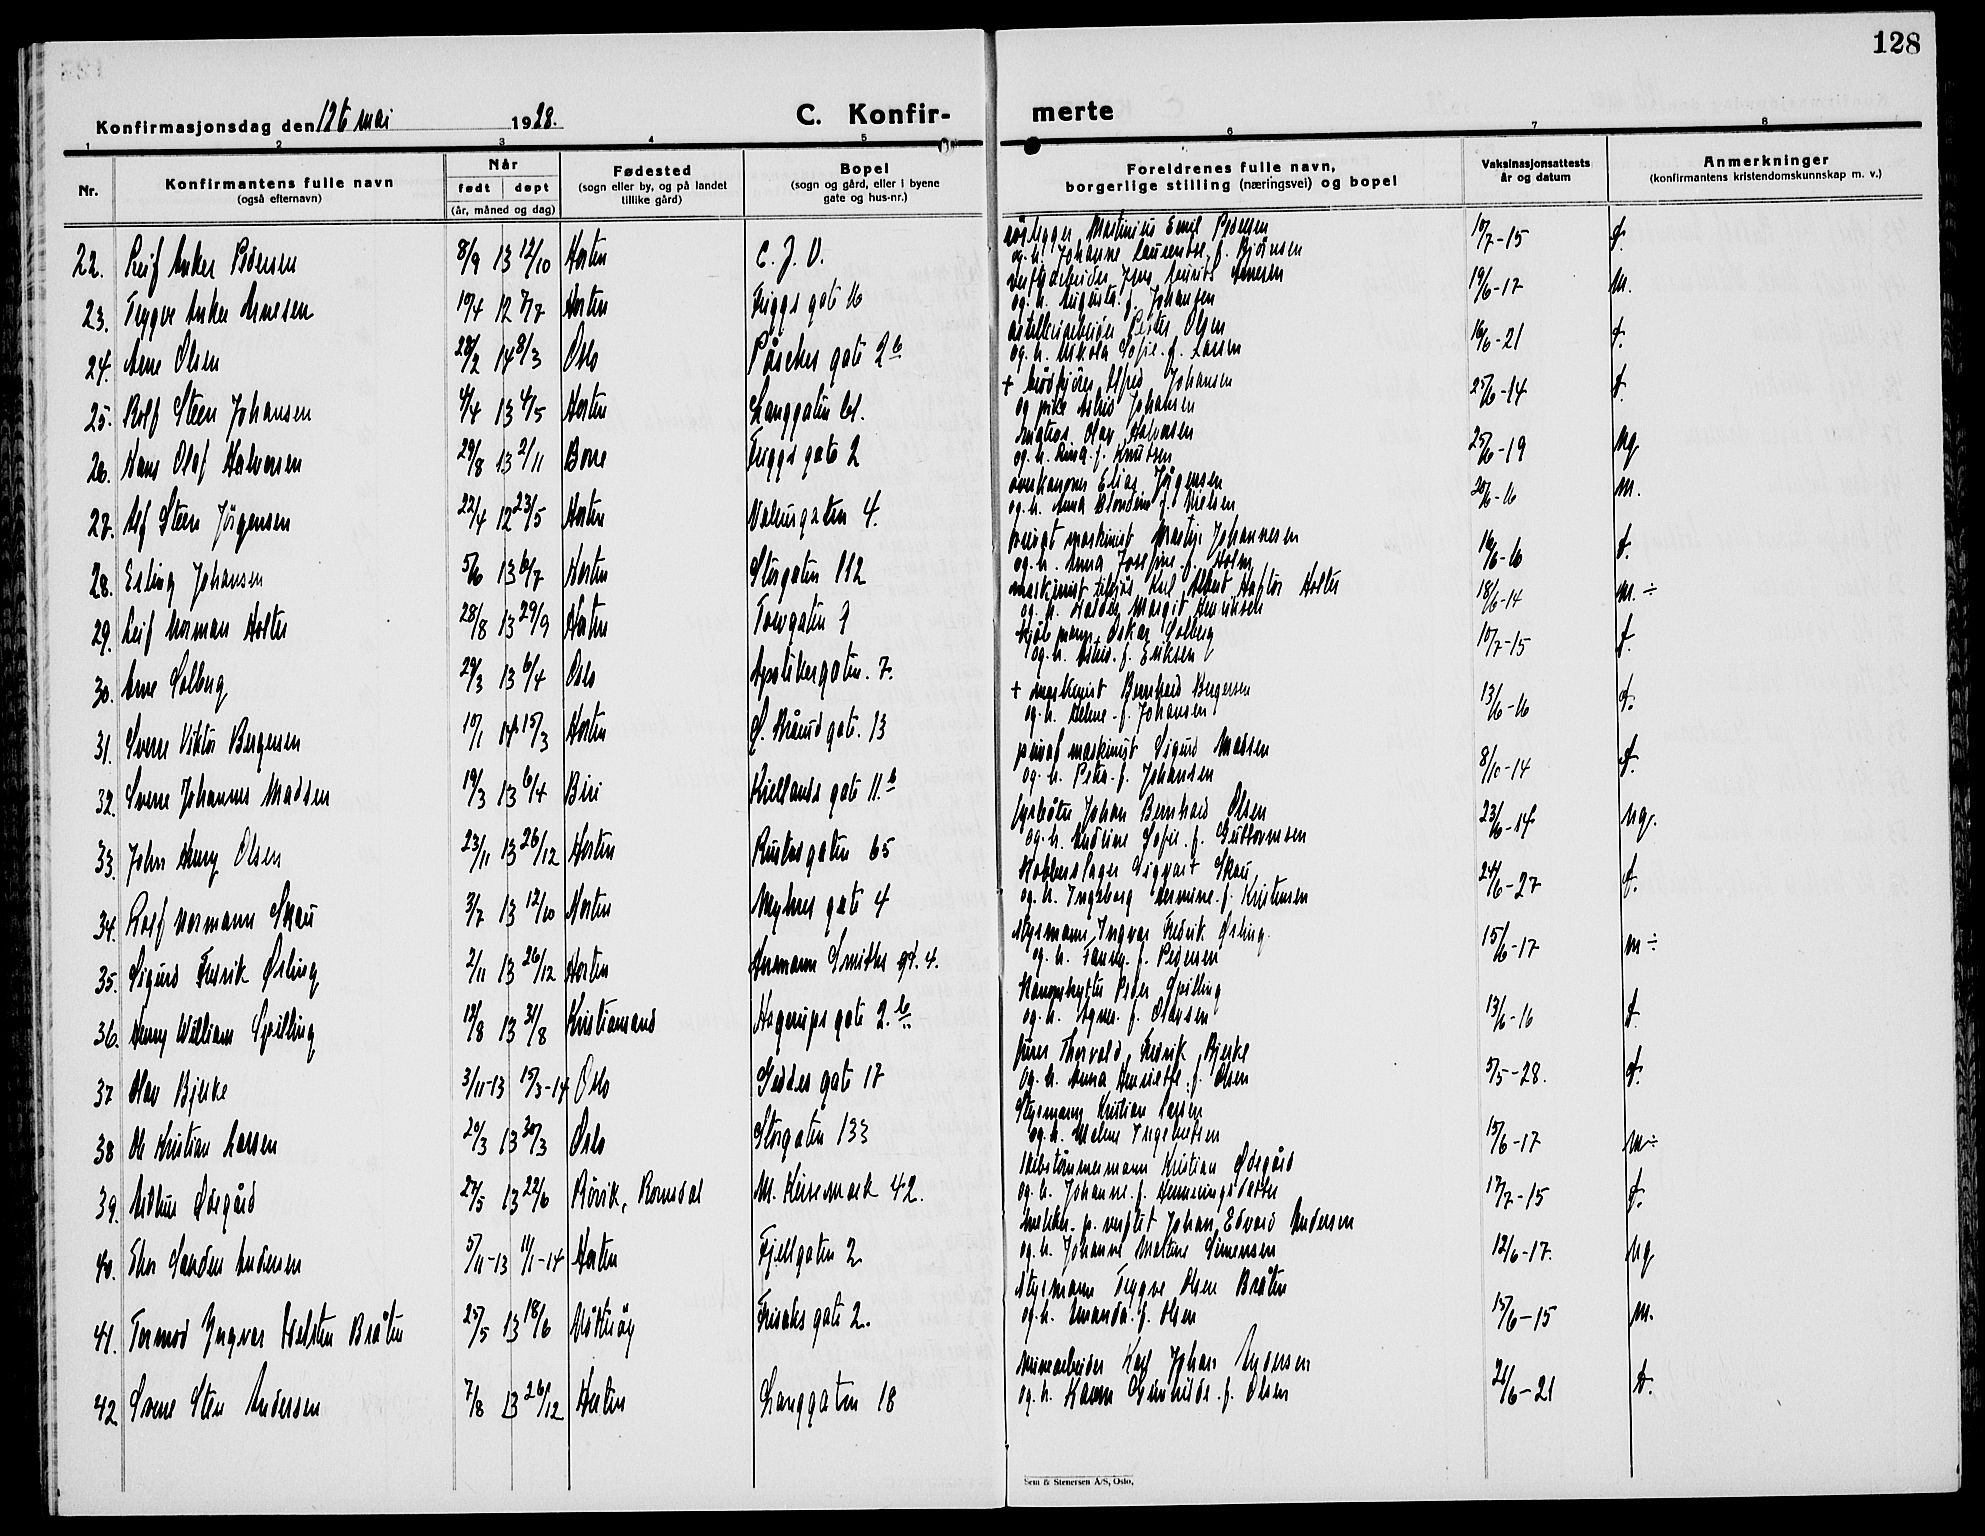 128
Konfirmasjonsdag den 126 mai 1928.
C. Konfir-
merte
1 2 3 4 5 6 7 8
Nr.
Konfirmantens fulle navn
(også efternavn)
Når
født døpt
(år, måned og dag)
Fødested
(sogn eller by, og på landet
tillike gård)
Bopel
(sogn og gård, eller i byene
gate og hus-nr.)
Foreldrenes fulle navn,
borgerlige stilling (næringsvei) og bopel
Vaksinasjonsattests
år og datum
Anmerkninger
(konfirmantens kristendomskunnskap m. v.)
22. Leif Anker 8/9 13 12/10 Horten C. J. V. Martinius Emil Pedersen 10/7-15
og h. Johanne Laurentse f. Bjørnsen
23. Trygve Anker Arnesen 10/4 12 7/7 Horten Friggs gate 16 Jens Arnesen 19/6-17 M.
og h. Augusta f. Johansen
24. Arne Olsen 28/2 14 8/3 Oslo Påsches gate 2b Peter Olsen 16/6-21
og h. Nikola Sofie f. Larsen
25. Rolf Steen Johansen 4/4 13 4/5 Horten Langgaten 61. + Alfred Johansen 25/6-14
og pike Astrid Johansen
26. Hans Olaf Halvorsen 29/8 13 2/11 Borre Friggs gate 2 Olav Halvorsen 25/6-19 Mg
og h. Anna f. Knutsen
27. Alf Steen Jörgensen 22/4 12 23/5 Horten Valeurgaten 4. Elias Jörgensen 20/6-16 M.
og h. Anna Blondine f. Nielsen
28. Erling Johansen 5/6 13 6/7 Horten Storgaten 112 privat maskinist Martin Johannesen 16/6-16
og h. Anna Josefine f. Holm
29. Leif Norman Holter 28/8 13 29/9 Horten Torvgaten 7 maskinist Karl Albert Holter 18/6-14 M. ÷
og h. Margit Henriksen
30. Arne Solberg 29/3 13 6/4 Oslo Apotikergaten 7. Kjöbmann Oskar Solberg 10/7-15
og h. Astrid f. Eriksen
31. Sverre Viktor Bergersen 10/1 14 15/3 Horten gate 13 + maskinist Bernhard Bergersen 13/6-16
og h. Helene f. Johansen
32. Sverre Johannes Madsen 19/3 13 6/4 Biri Kiellands gate 11.b privat maskinist Sigurd Madsen 8/10-14
og h. Petra f. Johansen
33. John Henry Olsen 23/11 13 26/12 Horten Rustadgaten 65 fyrbøter Johan Bernhard Olsen 23/6-14 Mg.
og h. Andrine Sofie f. Guttormsen
34. Rolf Normann Skau 3/7 13 12/10 Horten Myhres gate 4 Kobberslager Sigvart Skau 24/6-27
og h. Ingeborg Hermine f. Kristensen
35. Sigurd Fredrik Örling 2/11 13 26/12 Horten Hermann Smiths gt. 4. Styrmann Ingvar Fredrik Örling 15/6-17 M ÷
og h. Fanny f. Pedersen
36. Henry William Spilling 18/8 13 31/8 Kristiansand Hagerups gate 2.b Kanonskytter Peder Spilling 13/6-16
og h. Agnes f. Olavsen
37 Olav Bjerke 3/11-13 15/3-14 Oslo Geddes gate 17 furer Thorvald Fredrik Bjerke 5/5-28.
og h. Anna Henriette f. Olsen
38 Ole Kristian Larsen 20/3 13 30/3 Oslo Storgaten 133 Styrmann Kristian Larsen 15/6-17 M÷
og h. Malene Ingebretsen
39. Arthur Ödegård 27/5 13 22/6 Rövik, Romsdal 42. Skibstömmermann Kristian Ödegård 17/7-15
og h. Johanne f. Henningsdatter
40. Thor Sanden Andersen 5/11-13 11/1-14 Horten Fjellgaten 2 Johan Edvard Andersen 12/6-17. Mg
og h. Johanne Martine Simensen
41. Tormod Ingvar Bråten 25/5 13 18/6 Nötteröy gate 2. Styrmann Trygve Olsen Bråten 15/6-15 M.
og h. Amanda f. Olsen
42 Sverre Sten Andersen 7/8 13 26/12 Horten Langgaten 18 Minearbeider Karl Johan Andersen 20/6-21
og h. Karen Gunhilde f. Olsen
Sem & Stenersen A/S, Oslo.